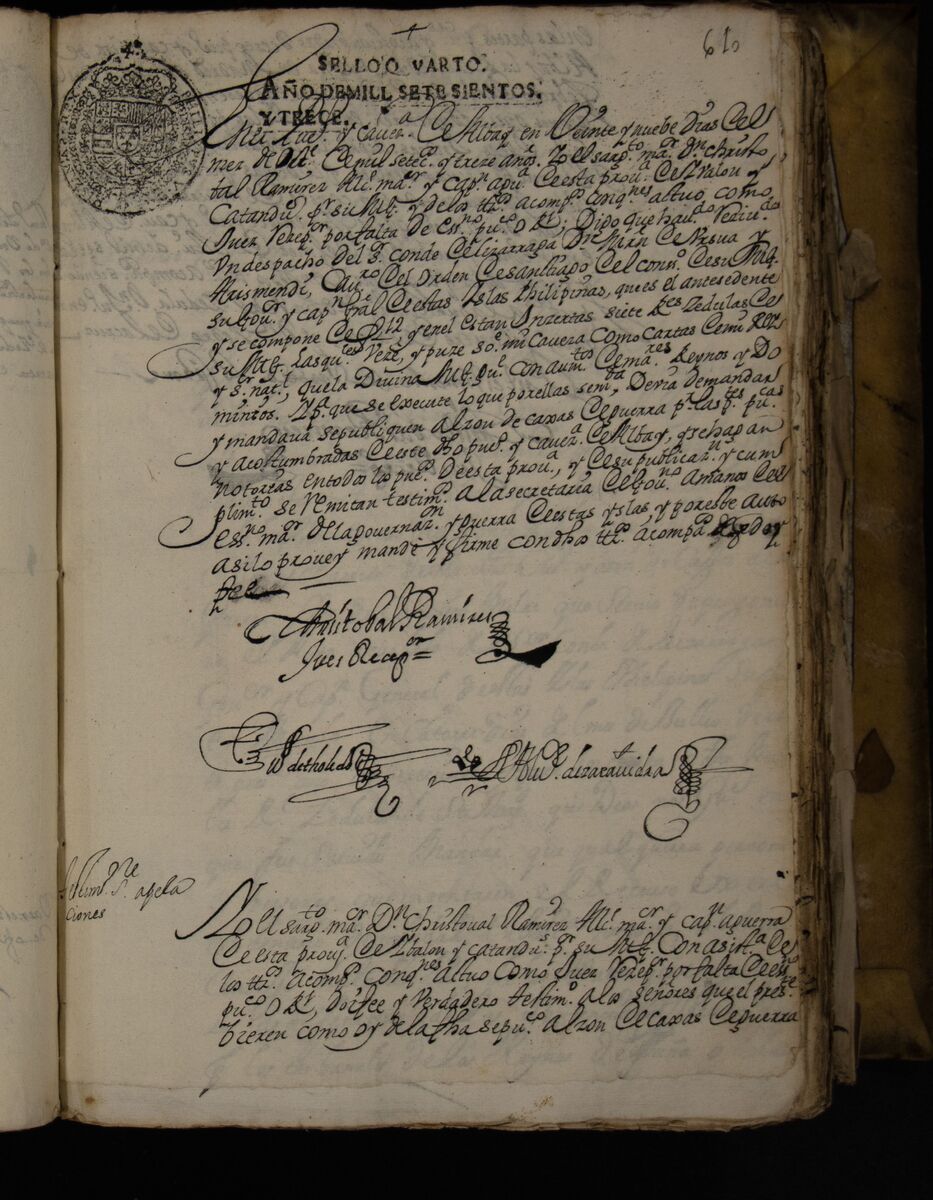 610
SELLO QVARTO.
AÑO DE MILL SETESIENTOS.
Y TRECE.
pue.º y cavez.ª de Albay en Veinte y nuebe Dias del
mez de de mil setec.s y treze años. Yo el sarg.to ma.r Dn Christo
bal Ramirez Alc.e ma.r y cap.n a gu.ª de esta prov.ª de Ybalon y
Catandu.s p.r su Mag. y de los tt.s acomp.s con q.nes actuo como
Juez Rezep.r por falta de ess.no pu.co o Rl; Dijo que hav.do Reciv.do
Un despacho del S.r conde de Lizarraga Dn Mrn de Ursua y
Arismendi, Cav.ro del orden de Santiago del cons.o de su Mag.
su gov.r y cap.n gral de estas Yslas Philipinas, que es el antecedente
y se compone de f 12 y en el estan Ynzertas siete R.es zedulas de
su Mag. las qu.es veze, y puze so.e mi caveza como cartas de mi Rey
y S.r nat.l que la Divina Mag. gu.e con aum.tos de ma.res Reynos y Do
minios. Y p.ª que se execute lo que por ellas se m.da, Devia de mandar
y mandava se publiquen al zon de caxas de guerra p.r las p.tes pu.cas
y acostumbradas de este dho pue.o y cavez.ª de Albay, y se hagan
notorias en todos los pue.s de esta prov.ª, y de su publicaz.n y cum
plim.to se Remitan testim.o a la secretaria de gov.no a manos del
ess.no ma.r de la governaz.n y guerra de estas yslas y por este auto
asi lo provey mande y firme con dhos tt.s acomp.s de q doy
fee
Christobal Ramires
Jues Recep.or
de tholedo
de zaravidra
testim.o de p.e a gela
ciones
Yo el sarg.to ma.r Dn Christoval Ramirez Alc.e ma.r y cap.n a guerra
de esta prov.ª de Ybalon y catandu.s p.r su Mag. con asist.ª de
los tt.s acomp.s con q.nes actuo como Juez Rezep.r por falta de ess.no
pu.co o Rl, Doy fee y Verdadero testim.o a los señores que el pres.te
vieren como oy de la fha se pu.co al zon de caxas de guerra